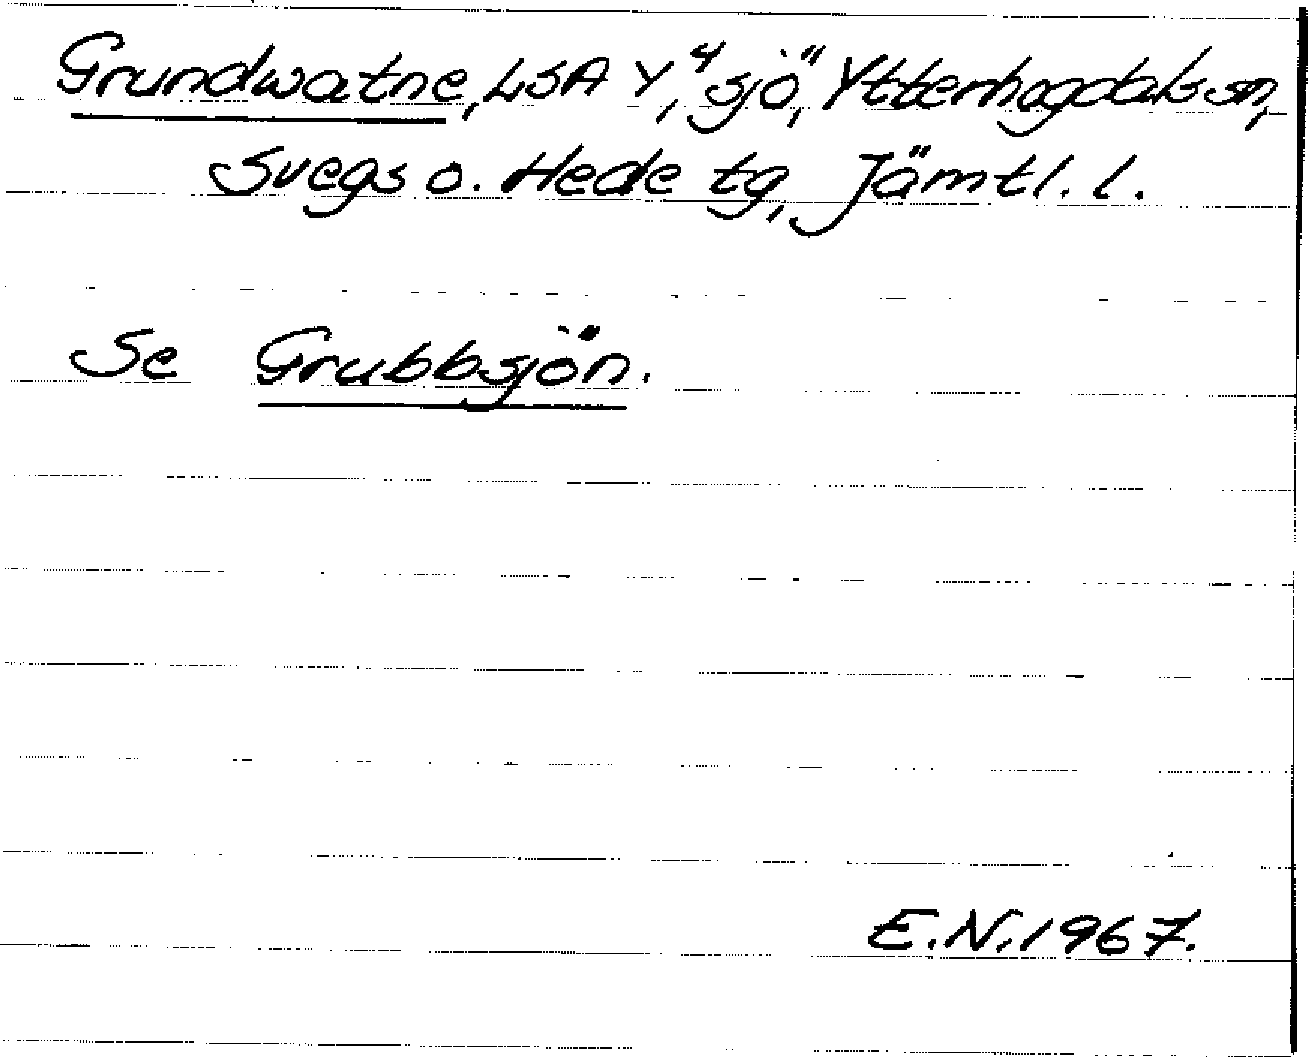 Grundwatne, LSA Y, "sjö", Ytterhogdals sn,
Svegs o. Hede tg, Jämtl. l.
Se Grubbsjön.
E.N. 1967.